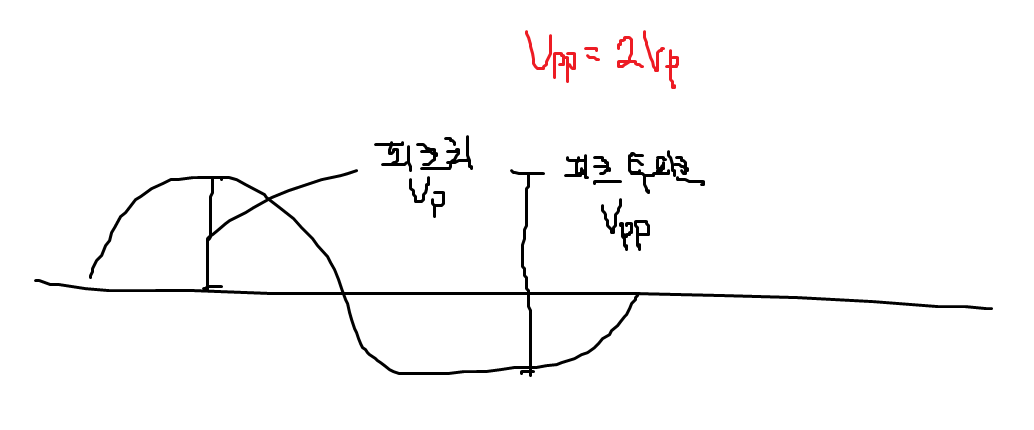 Vpp = 2Vp
피크치
Vp
피크 투 피크
Vpp